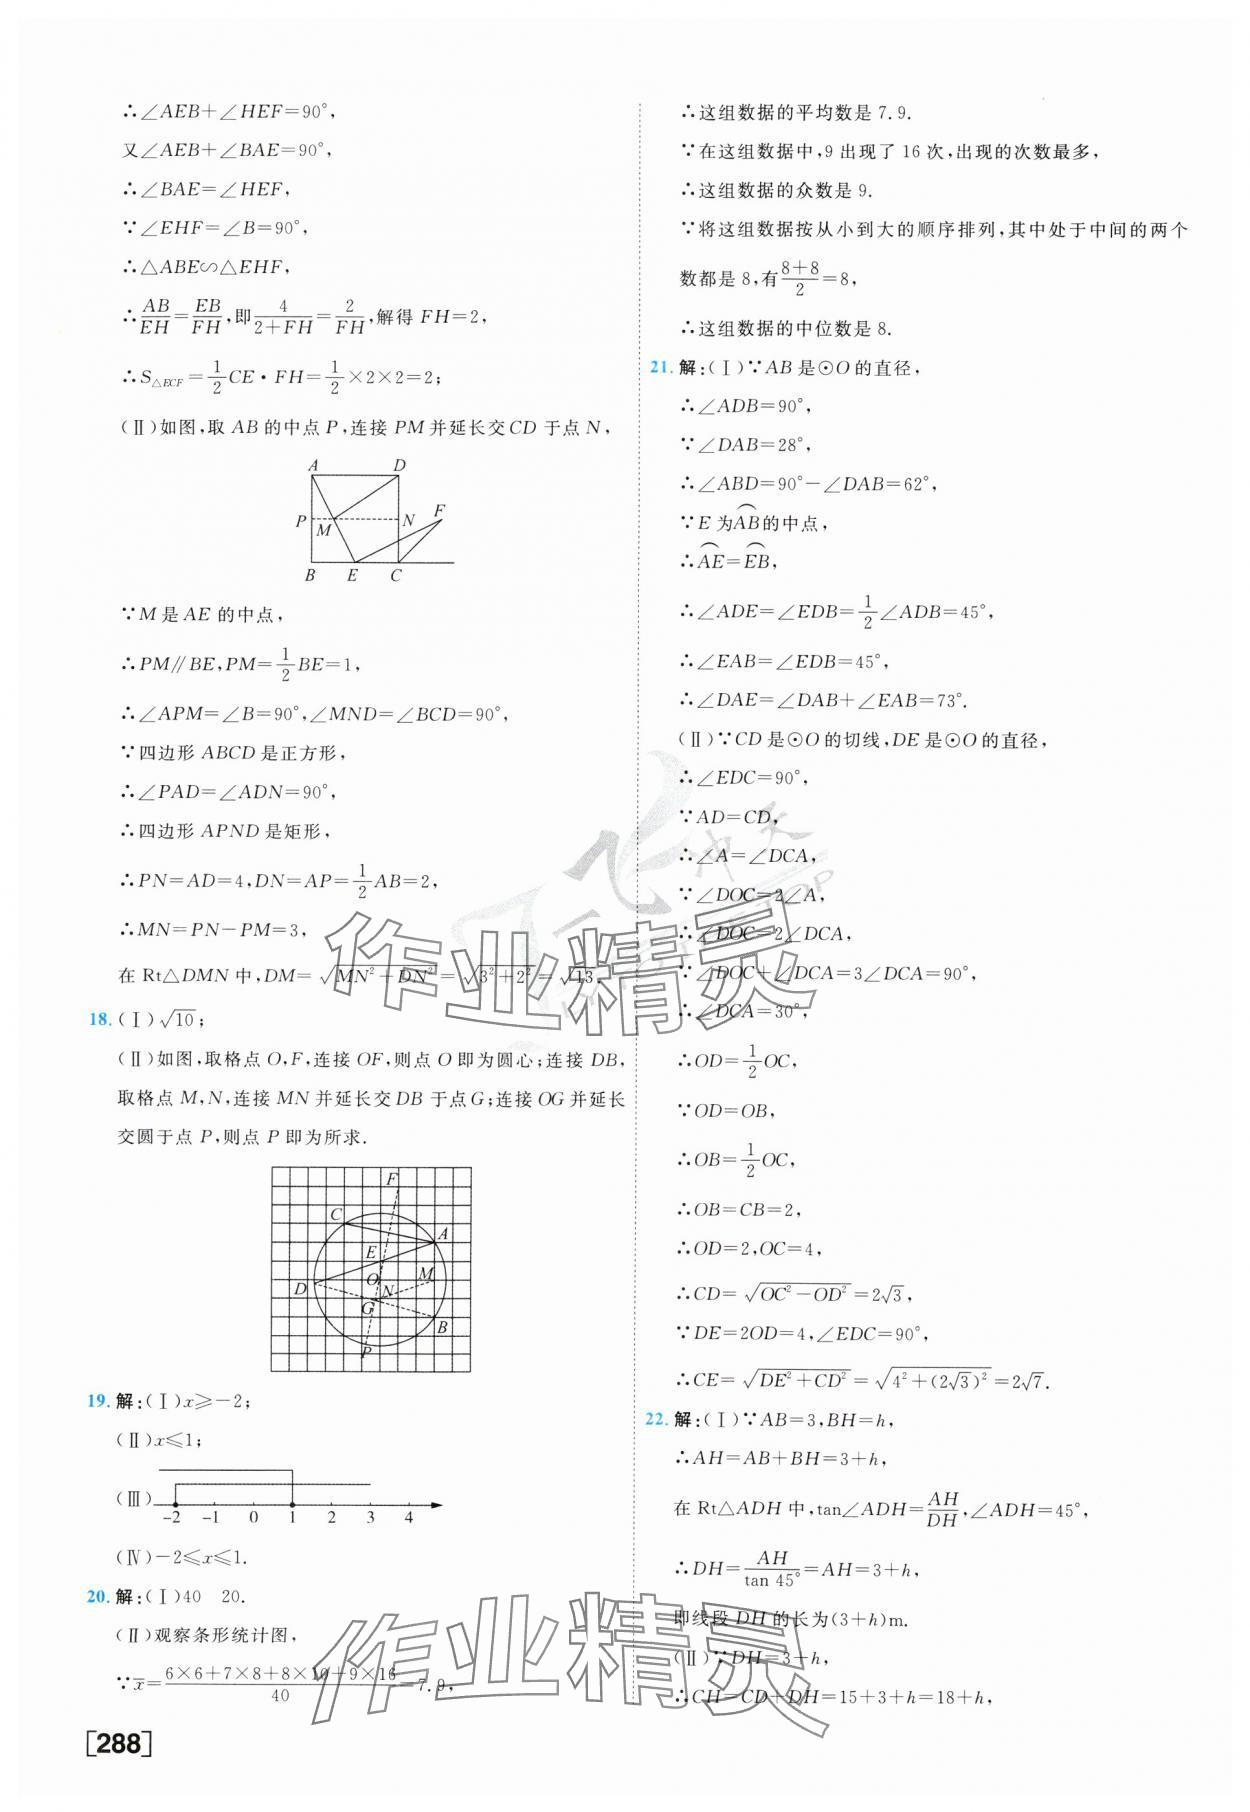 ∴∠AEB+∠HEF=90°,
又∠AEB+∠BAE=90°,
∴∠BAE=∠HEF,
∵∠EHF=∠B=90°,
∴△ABE∽△EHF,
∴AB/EH=EB/FH,即4/(2+FH)=2/FH,解得FH=2,
∴S△ECF=1/2CE·FH=1/2×2×2=2;
(Ⅱ)如图,取AB的中点P,连接PM并延长交CD于点N,
A D
F
P M N
B E C
∵M是AE的中点,
∴PM∥BE,PM=1/2BE=1,
∴∠APM=∠B=90°,∠MND=∠BCD=90°,
∵四边形ABCD是正方形,
∴∠PAD=∠ADN=90°,
∴四边形APND是矩形,
∴PN=AD=4,DN=AP=1/2AB=2,
∴MN=PN-PM=3,
在Rt△DMN中,DM=√(MN²+DN²)=√(3²+2²)=√13.
18.(Ⅰ)√10;
(Ⅱ)如图,取格点O,F,连接OF,则点O即为圆心;连接DB,
取格点M,N,连接MN并延长交DB于点G;连接OG并延长
交圆于点P,则点P即为所求.
F
C
A
E
D O N M
G
B
P
19.解:(Ⅰ)x≥-2;
(Ⅱ)x≤1;
(Ⅲ)
-2 -1 0 1 2 3 4
(Ⅳ)-2≤x≤1.
20.解:(Ⅰ)40 20.
(Ⅱ)观察条形统计图,
∵x̄=(6×6+7×8+8×10+9×16)/40=7.9,
[288]
∴这组数据的平均数是7.9.
∵在这组数据中,9出现了16次,出现的次数最多,
∴这组数据的众数是9.
∵将这组数据按从小到大的顺序排列,其中处于中间的两个
数都是8,有(8+8)/2=8,
∴这组数据的中位数是8.
21.解:(Ⅰ)∵AB是⊙O的直径,
∴∠ADB=90°,
∵∠DAB=28°,
∴∠ABD=90°-∠DAB=62°,
∵E为A͡B的中点,
∴A͡E=E͡B,
∴∠ADE=∠EDB=1/2∠ADB=45°,
∴∠EAB=∠EDB=45°,
∴∠DAE=∠DAB+∠EAB=73°.
(Ⅱ)∵CD是⊙O的切线,DE是⊙O的直径,
∴∠EDC=90°,
∵AD=CD,
∴∠A=∠DCA,
∵∠DOC=2∠A,
∴∠DOC=2∠DCA,
∵∠DOC+∠DCA=3∠DCA=90°,
∴∠DCA=30°,
∴OD=1/2OC,
∵OD=OB,
∴OB=1/2OC,
∴OB=CB=2,
∴OD=2,OC=4,
∴CD=√(OC²-OD²)=2√3,
∵DE=2OD=4,∠EDC=90°,
∴CE=√(DE²+CD²)=√(4²+(2√3)²)=2√7.
22.解:(Ⅰ)∵AB=3,BH=h,
∴AH=AB+BH=3+h,
在Rt△ADH中,tan∠ADH=AH/DH,∠ADH=45°,
∴DH=AH/tan 45°=AH=3+h,
即线段DH的长为(3+h)m.
(Ⅱ)∵DH=3+h,
∴CH=CD+DH=15+3+h=18+h,
作业精灵
作业精灵